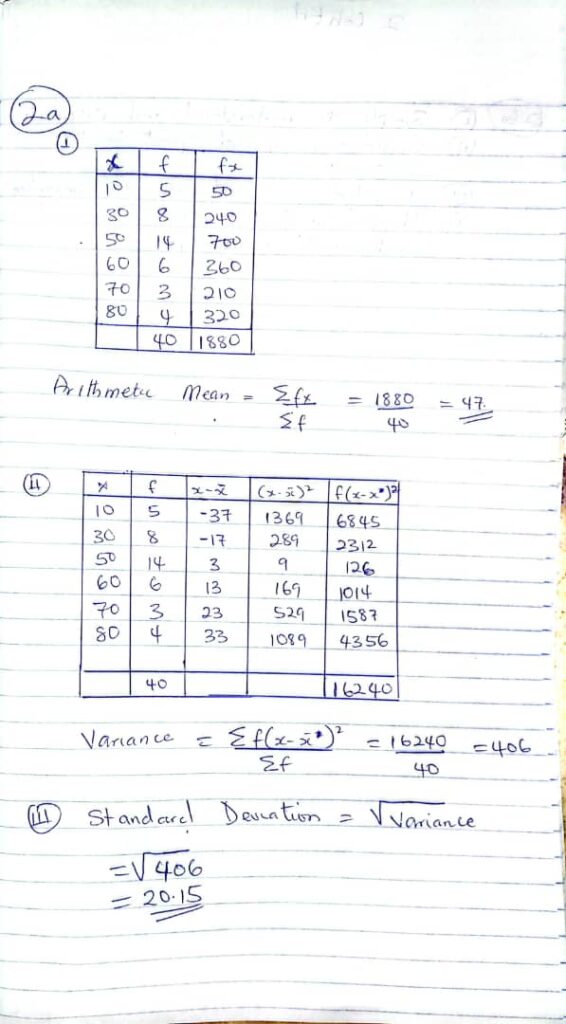 2a
I
x f fx
10 5 50
30 8 240
50 14 700
60 6 360
70 3 210
80 4 320
40 1880
Arithmetic Mean = Σfx = 1880 = 47.
Σf 40
II
x f x-x̄ (x-x̄)² f(x-x*)²
10 5 -37 1369 6845
30 8 -17 289 2312
50 14 3 9 126
60 6 13 169 1014
70 3 23 529 1587
80 4 33 1089 4356
40 16240
Variance = Σf(x-x̄*)² = 16240 = 406
Σf 40
III Standard Deviation = √Variance
=√406
= 20.15